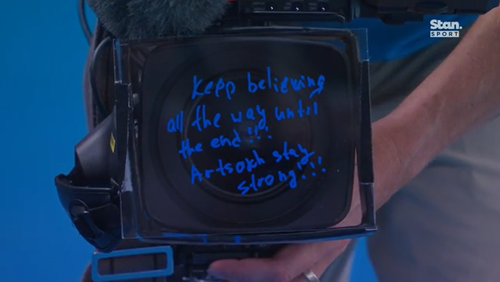 Stan.
SPORT
Kepp believing
all the way until
the end!!!
Artsakh stay
strong!!!